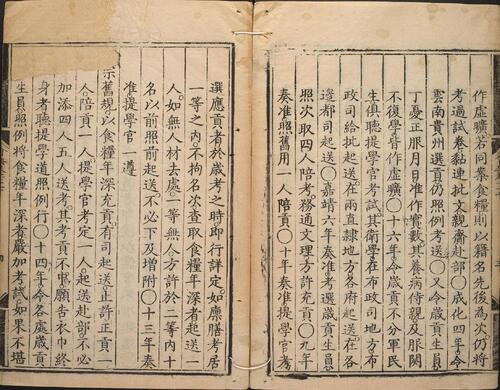 作虛曠若同案食糧則以籍名先後爲次仍將
考過試卷黏連批文親齎赴部○成化四年令
雲南貴州選貢仍照例考送○又令歲貢生員
丁憂正服月日准作實數其養病侍親及服闋
不復學皆作虛曠○十六年令歲貢不分軍民
生俱聽提學官考試其衛學在布政司地方布
政司給批起送在兩直隸地方各府起送在各
邊都司起送○嘉靖六年奏准考選歲貢生員
照次取四人陪考務通文理方許充貢○九年
奏准照舊用一人陪貢○十年奏准提學官考
選應貢者於歲考之時即行詳定如廩膳考居
一等之內不拘名次查取食糧年深者起送一
人如無人材去處一等無人方許於二等內十
名以前照前起送不必下及增附○十三年奏
准提學官 遵
宗舊規以食糧年深充貢有司起送止許正貢一
人陪貢一人提學官考定一人起送赴部不必
加添四人五人送考其考貢不中願告衣巾終
身者聽提學道照例行○十四年令各處歲貢
生員照例將食糧年深者嚴加考試如果不堪